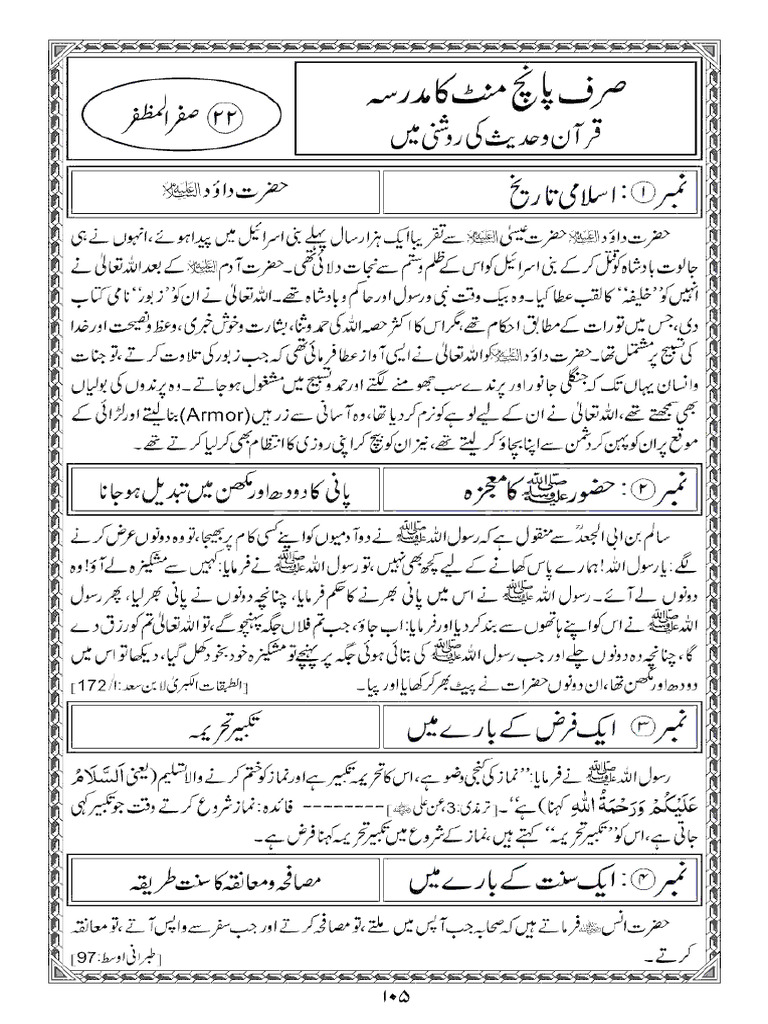 صرف پانچ منٹ کا مدرسہ
قرآن و حدیث کی روشنی میں
۲۲ صفر المظفر
نمبر ۱ : اسلامی تاریخ
حضرت داؤد علیہ السلام
حضرت داؤد علیہ السلام حضرت عیسیٰ علیہ السلام سے تقریبا ایک ہزار سال پہلے بنی اسرائیل میں پیدا ہوئے، انہوں نے ہی
جالوت بادشاہ کو قتل کر کے بنی اسرائیل کو اس کے ظلم و ستم سے نجات دلائی تھی۔ حضرت آدم علیہ السلام کے بعد اللہ تعالیٰ نے
انہیں کو ”خلیفہ“ کا لقب عطا کیا۔ وہ بیک وقت نبی و رسول اور حاکم و بادشاہ تھے۔ اللہ تعالیٰ نے ان کو ”زبور“ نامی کتاب
دی، جس میں تورات کے مطابق احکام تھے، مگر اس کا اکثر حصہ اللہ کی حمد و ثنا، بشارت و خوش خبری، وعظ و نصیحت اور خدا
کی تسبیح پر مشتمل تھا۔ حضرت داؤد علیہ السلام کو اللہ تعالیٰ نے ایسی آواز عطا فرمائی تھی کہ جب زبور کی تلاوت کرتے، تو جنات
و انسان یہاں تک کہ جنگلی جانور اور پرندے سب جھومنے لگتے اور حمد و تسبیح میں مشغول ہو جاتے۔ وہ پرندوں کی بولیاں
بھی سمجھتے تھے، اللہ تعالیٰ نے ان کے لیے لوہے کو نرم کر دیا تھا، وہ آسانی سے زرہیں (Armor) بنا لیتے اور لڑائی کے
موقع پر ان کو پہن کر دشمن سے اپنا بچاؤ کر لیتے تھے، نیز ان کو بیچ کر اپنی روزی کا انتظام بھی کر لیا کرتے تھے۔
نمبر ۲ : حضور ﷺ کا معجزہ
پانی کا دودھ اور مکھن میں تبدیل ہو جانا
سالم بن ابی الجعدؒ سے منقول ہے کہ رسول اللہ ﷺ نے دو آدمیوں کو اپنے کسی کام پر بھیجا، تو وہ دونوں عرض کرنے
لگے: یا رسول اللہ! ہمارے پاس کھانے کے لیے کچھ بھی نہیں، تو رسول اللہ ﷺ نے فرمایا: کہیں سے مشکیزہ لے آؤ! وہ
دونوں لے آئے۔ رسول اللہ ﷺ نے اس میں پانی بھرنے کا حکم فرمایا، چنانچہ دونوں نے پانی بھر لیا، پھر رسول
اللہ ﷺ نے اس کو اپنے ہاتھوں سے بند کر دیا اور فرمایا: اب جاؤ، جب تم فلاں جگہ پہنچو گے، تو اللہ تعالیٰ تم کو رزق دے
گا، چنانچہ وہ دونوں چلے اور جب رسول اللہ ﷺ کی بتائی ہوئی جگہ پر پہنچے تو مشکیزہ خود بخود کھل گیا، دیکھا تو اس میں
دودھ اور مکھن تھا، ان دونوں حضرات نے پیٹ بھر کر کھایا اور پیا۔ [الطبقات الکبریٰ لابن سعد: ۱/172]
نمبر ۳ : ایک فرض کے بارے میں
تکبیر تحریمہ
رسول اللہ ﷺ نے فرمایا: ”نماز کی کنجی وضو ہے، اس کا تحریمہ تکبیر ہے اور نماز کو ختم کرنے والا تسلیم (یعنی اَلسَّلَامُ
عَلَيْكُمْ وَرَحْمَةُ اللّٰهِ کہنا) ہے“۔ [ترمذی: 3، عن علی رضی اللہ عنہ] -------- فائدہ: نماز شروع کرتے وقت جو تکبیر کہی
جاتی ہے، اس کو ”تکبیر تحریمہ“ کہتے ہیں، نماز کے شروع میں تکبیر تحریمہ کہنا فرض ہے۔
نمبر ۴ : ایک سنت کے بارے میں
مصافحہ و معانقہ کا سنت طریقہ
حضرت انس رضی اللہ عنہ فرماتے ہیں کہ صحابہ جب آپس میں ملتے، تو مصافحہ کرتے اور جب سفر سے واپس آتے، تو معانقہ
کرتے۔ [طبرانی اوسط: 97]
۱۰۵